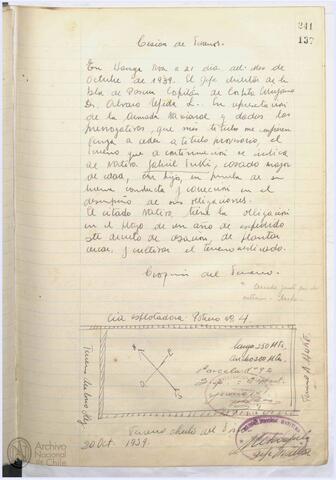 241
137
Cesión de Terreno.
En Hanga Roa a 21 día del mes de
Octubre de 1939. El Jefe militar de la
Isla de Pascua Capitán de Corbeta Cirujano
Dr. Alvaro Tejeda L. En representación
de la Armada Nacional y dadas las
prerrogativas, que mis título me confieren
vengo a ceder a título provisorio, el
terreno que a continuación se indica
al Nativo Gabriel Tuki, casado mayor
de edad, hijo, en prueba de su
buena conducta y corrección en el
desempeño de sus obligaciones.
El citado Nativo, tiene la obligación
en el plazo de un año de expedido
este de cesión, de plantar
cercar y cultivar el terreno indicado.
Croquis del Terreno.
Cía Explotadora Potrero Nº 4
largo 250 Mts.
ancho 200 Mts.
Parcela Nº 92
Terreno
Terreno A.
Terreno del
20 Oct. 1939.
Archivo
Nacional
de Chile